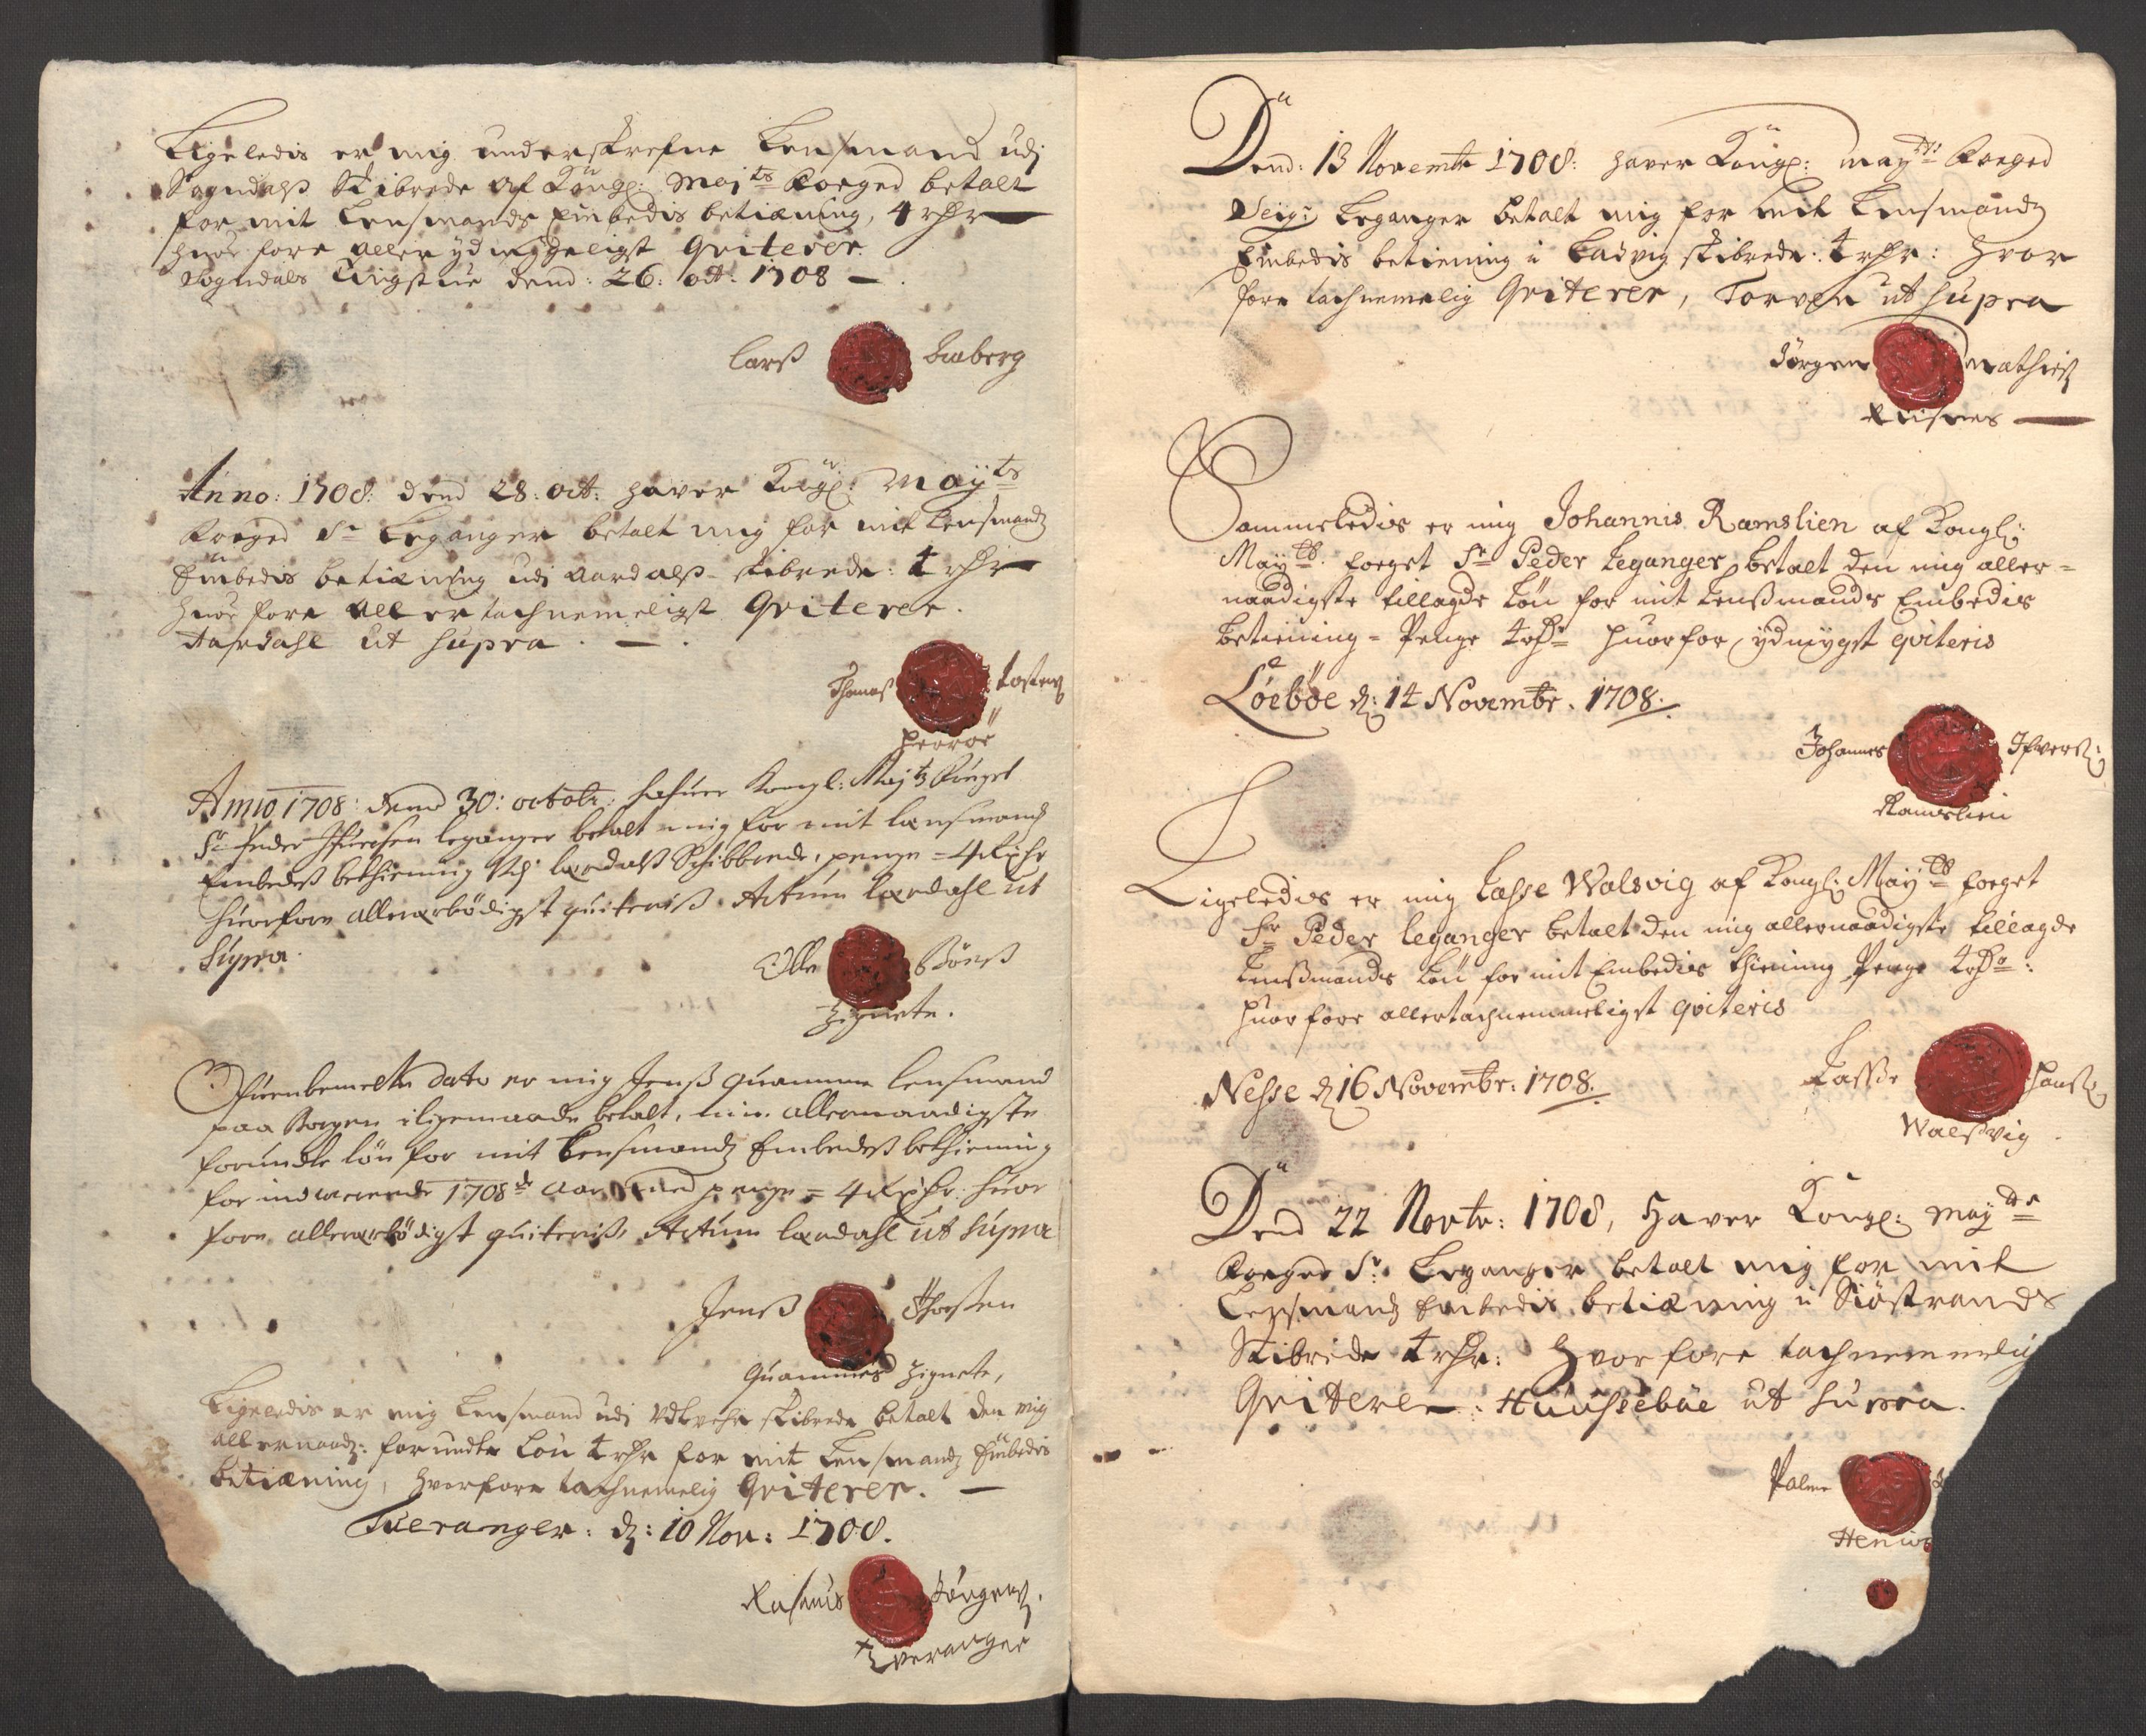 Ligeledis er mig underskrefne Lensmand udj
Sogndals Skibrede af Kongl: Mayts Foeged betalt
for mit Lensmands Embedis betiening, 4 rdr
huor fore aller ydmygeligst Qviterer.
Sogndals tingstue dend: 26: oct: 1708 –
Larß Omberg
Anno: 1708: dend 28: oct: haver Kongl: Mayts
Foeged Sr Leganger betalt mig for mit Lensmandz
Embedis betiening udi Aardalß skibrede: 4 rdr
huor fore aller tachnemeligst Qviterer.
Aardahl ut supra . — .
Thomas
Anno 1708: dend 30: octobr: hafuer Kongl: Maytz fouget
Sr Peder Ifuersen leganger betalt mig for mit lænsmandz
Embedeß bethienning Udj lærdalß Schibbrede, penge = 4 Rixdr
huorfore allerærbødigst quiteriß. Actum Lærdahl ut
Supra.
Olle Børeß
Zignete.
Ofuenbemelte dato er mig Jenß Quamme lensmand
paa Borgen i ligemaade betalt, min allernaadigste
forundte løn for mit Lensmandz Embedeß bethienning
for indeværende 1708de aar med penge = 4 Rixdr: huor
fore allerærbødigst quiteriß, Actum lærdahl ut supra
Jenß Thorsten
Quammes Zignete,
Ligeledis er mig Lensmand udi Vdtvehr skibrede betalt den mig
allernaadz: forundte Løn 4 rdr for mit Lensmandz Embedis
betiening, hvorfore tachnemelig Qviterer. —
Tueranger: dz: 10 Nov: 1708.
Rasmus Jørgens.
Tveranger
Dend: 13 Novembr 1708: haver Kongl: Mayts: Foeged
Seigr Leganger betalt mig for mit Lensmandz
Embedis betiening i Ladvig skibrede: 4 rdr: hvor
fore tachnemelig Qviterer, Torven ut supra
Jørgen Mathisz
Riisnes —
Sammeledis er mig Johannis Ramslien af Kongl:
Mayts: foeget Sr Peder Leganger betalt den mig aller-
naadigste tillagde Løn for mit Lensmands Embedis
betiening = Penge 4 rdr huorfor ydmygst qviteris
Løebøe dz: 14 Novembr. 1708.
Johannes Ifversz:
Ramslien
Ligeledis er mig Lasse Walsvig af Kongl: Mayts foeget
Sr Peder Leganger betalt den mig allernaadigste tillagde
Lensmands Løn for mit Embedis thiening Penge 4 rdr:
huor fore allertachnemmeligst qviteris
Nesse dz 16 Novembr: 1708.
Lasse Hansz
Walsvig
Dend 22 Novbr: 1708, Haver Kongl: Mayts
Foeged Sr. Leganger betalt mig for mit
Lensmandz Embedis betiening i Siøstrands
Skibrede 4 rdr: Hvor fore tachnemmelig
Qviterer: Huusebøe ut supra.
Palme
Henius